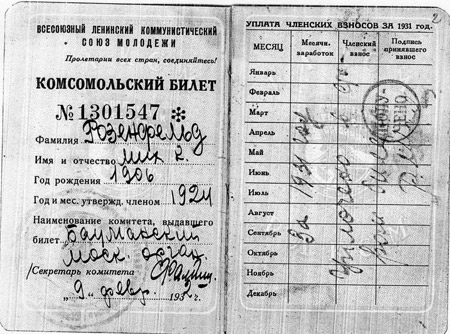 ВСЕСОЮЗНЫЙ ЛЕНИНСКИЙ КОММУНИСТИЧЕСКИЙ
СОЮЗ МОЛОДЕЖИ
Пролетарии всех стран, соединяйтесь!
КОМСОМОЛЬСКИЙ БИЛЕТ
№ 1301547 *
Фамилия Розенфельд
Имя и отчество Мих.
Год рождения 1906
Год и мес. утвержд. членом 1924
Наименование комитета, выдавшего
билет Бауманский
Моск.
Секретарь комитета
"9" февр 193 г.
2
УПЛАТА ЧЛЕНСКИХ ВЗНОСОВ ЗА 1931 год.
МЕСЯЦ Месячн. заработок Членский взнос Подпись принявшего взнос
Январь
Февраль
Март
Апрель
Май
Июнь
Июль
Август
Сентябрь
Октябрь
Ноябрь
Декабрь
За 1931 год